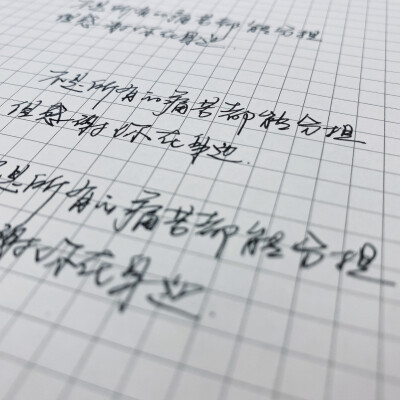 不是所有的痛苦都能分担
但感谢你在身边
不是所有的痛苦都能分担
但感谢你在身边.
是所有的痛苦都能分担
谢你在身边.